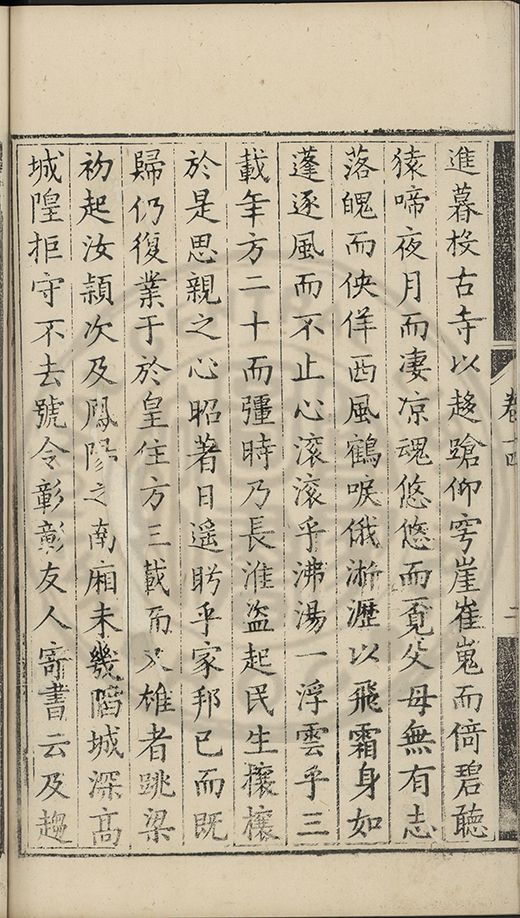 進暮投古寺以趍蹌仰穹崖崔嵬而倚碧聽
猿啼夜月而凄凉魂悠悠而覓父母無有志
落魄而佒佯西風鶴唳俄淅瀝以飛霜身如
蓬逐風而不止心滚滚乎沸湯一浮雲乎三
載年方二十而彊時乃長淮盗起民生攘攘
於是思親之心昭著日遥盻乎家邦已而既
歸仍復業于於皇住方三載而又雄者跳梁
初起汝頴次及鳳陽之南廂未幾䧟城深高
城隍拒守不去號令彰彰友人寄書云及趨
卷十四
二